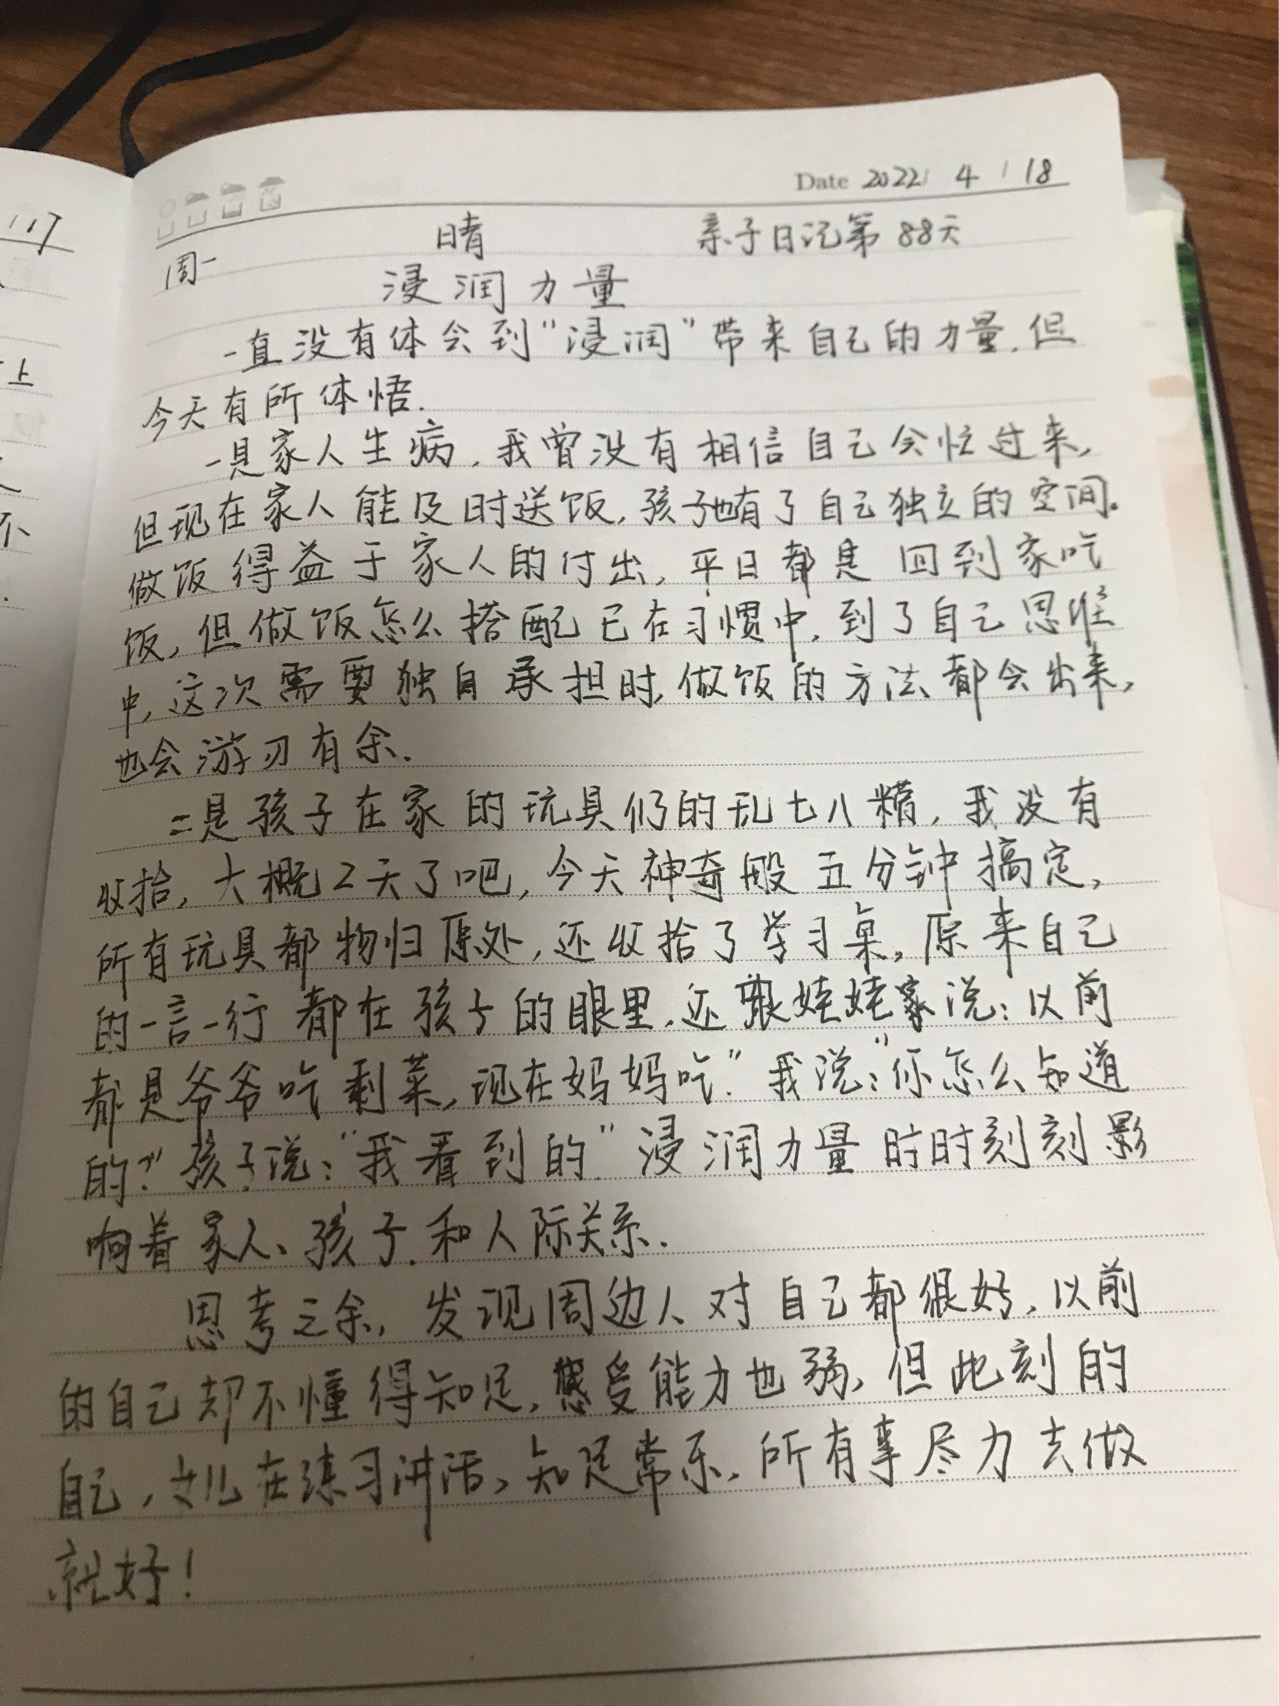 117
上
不
Date 2022 / 4 / 18
周一 晴 亲子日记第88天
浸润力量
一直没有体会到"浸润"带来自己的力量.但
今天有所体悟.
一是家人生病,我曾没有相信自己会忙过来,
但现在家人能及时送饭,孩子也有了自己独立的空间。
做饭得益于家人的付出,平日都是回到家吃
饭,但做饭怎么搭配已在习惯中,到了自己思维
中,这次需要独自承担时,做饭的方法都会出来,
也会游刃有余.
二是孩子在家的玩具们的乱七八糟,我没有
收拾,大概2天了吧,今天神奇般五分钟搞定,
所有玩具都物归原处,还收拾了学习桌,原来自己
的一言一行都在孩子的眼里,还跟姥姥家说:以前
都是爷爷吃剩菜,现在妈妈吃."我说:"你怎么知道
的?"孩子说:"我看到的"浸润力量时时刻刻影
响着家人、孩子.和人际关系.
思考之余,发现周边人对自己都很好,以前
的自己却不懂得知足,感受能力也弱,但此刻的
自己,女儿在练习讲话,知足常乐,所有事尽力去做
就好!